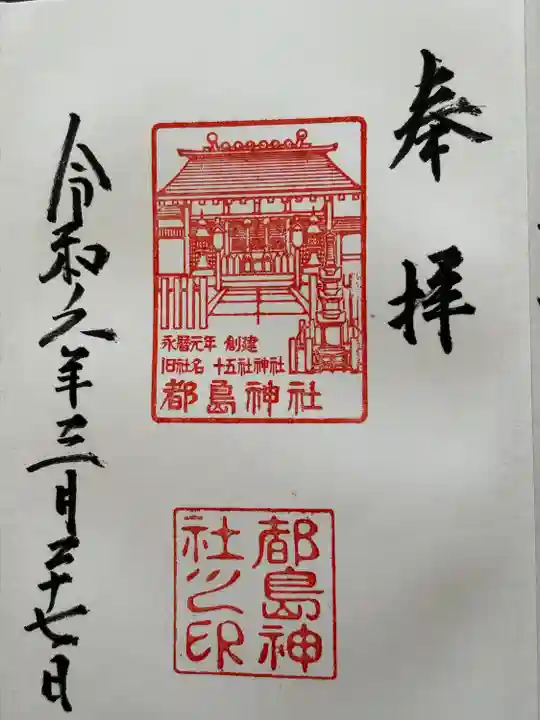 奉拝
永暦元年 創建
旧社名 十五社神社
都島神社
都島神社之印
令和六年三月二十七日